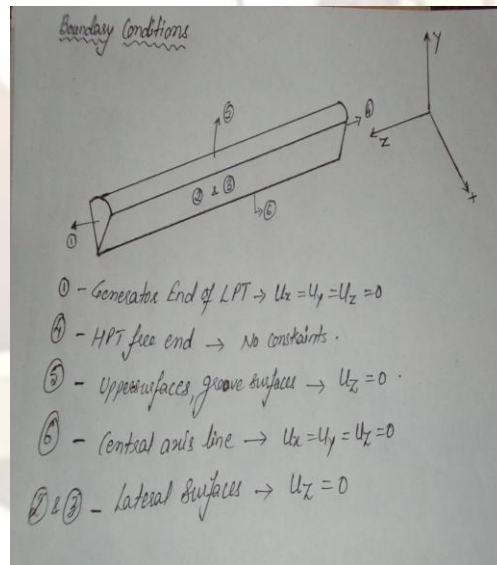 Boundary Conditions
Y
⑤
④
Z
② & ③
X
①
⑥
① - Generator End of LPT → Ux = Uy = Uz = 0
④ - HPT free end → No constaints.
⑤ - Uppersurfaces, groove surfaces → Uz = 0.
⑥ - Central axis line → Ux = Uy = Uz = 0
② & ③ - Lateral Surfaces → Uz = 0